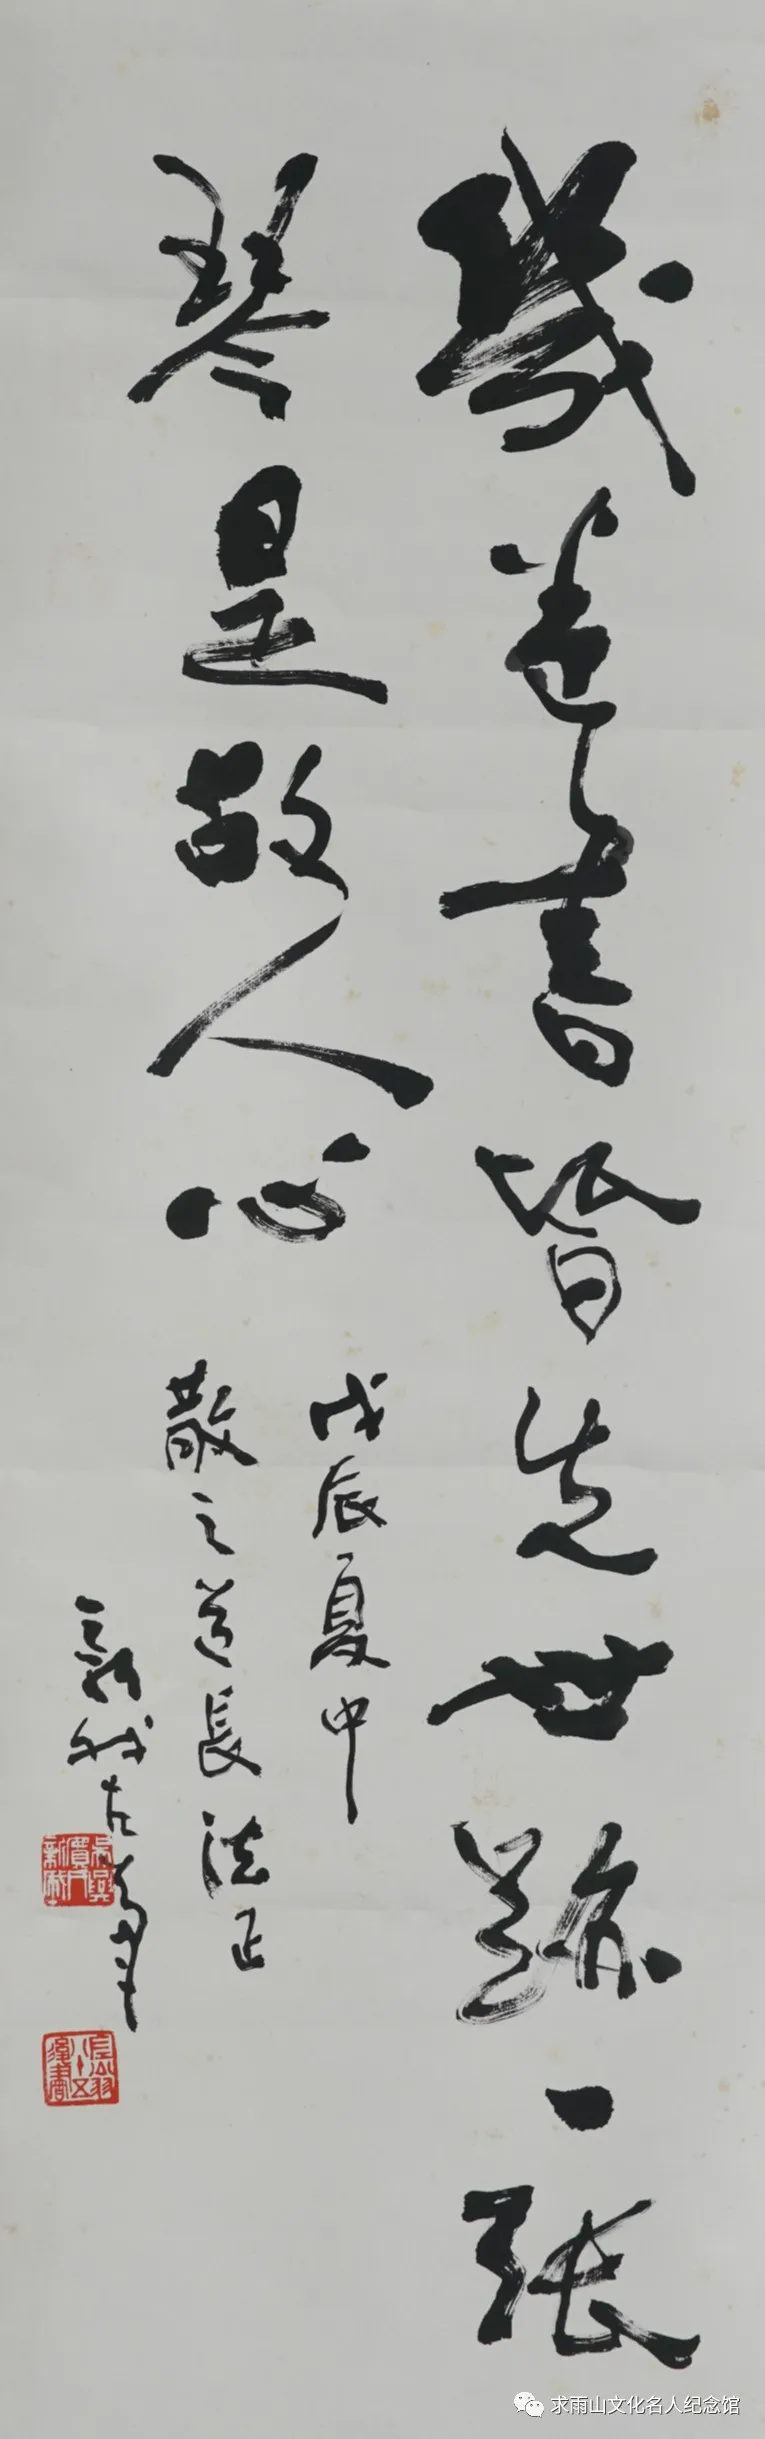 幾卷書皆先世跡一張
琴是故人心
戊辰夏中
散之道長法正
新我左筆
求雨山文化名人纪念馆